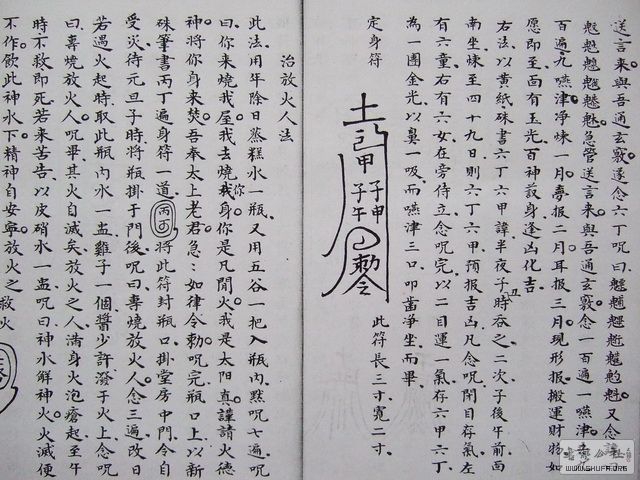 送言来与吾通玄竅遂念六丁呪曰
急管送言来與吾通玄竅念一百遍一嚥津
百遍九嚥津净煉一月夢报二月耳报三月現形报搬運財物如
愿即至面有玉光百神設身逢凶化吉
右法以黄紙硃書六丁六甲諱半夜子時吞之二次子後午前面
南坐煉至四十九日則六丁六甲预报吉凶凡念呪閉目存氣左
有六童右有六女在旁侍立念呪完以二目運一氣存六甲六丁
為一團金光以鼻一吸而嚥津三口叩齒净坐而畢
定身符
土
甲
子午
子申
勅令
此符長三寸寬二寸
治放火人法
此法用年除日蒸糕水一瓶又用五谷一把入瓶内黙呪七遍呪
曰你来燒我屋我去燒你身你是凡間火我是太阳真諱請火德
神将你身来焚吾奉太上老君急二如律令勅呪完瓶口上以新
硃筆書丙丁遍身符一道將此符封瓶口掛堂房中門令自
受災待元旦子時將瓶掛于門後呪曰專燒放火人念三遍改日
若遇火起時取此瓶内水一盅雞子一個醬少許潑于火上念呪
曰專燒放火人呪畢其火自滅矣放火之人满身火泡瘡起至午
時不救即死若来苦告以皮硝水一盅呪曰神水解神火火滅便
不作飲此神水下精神自安寧放火之救火
WWW.SHUFA.ORG